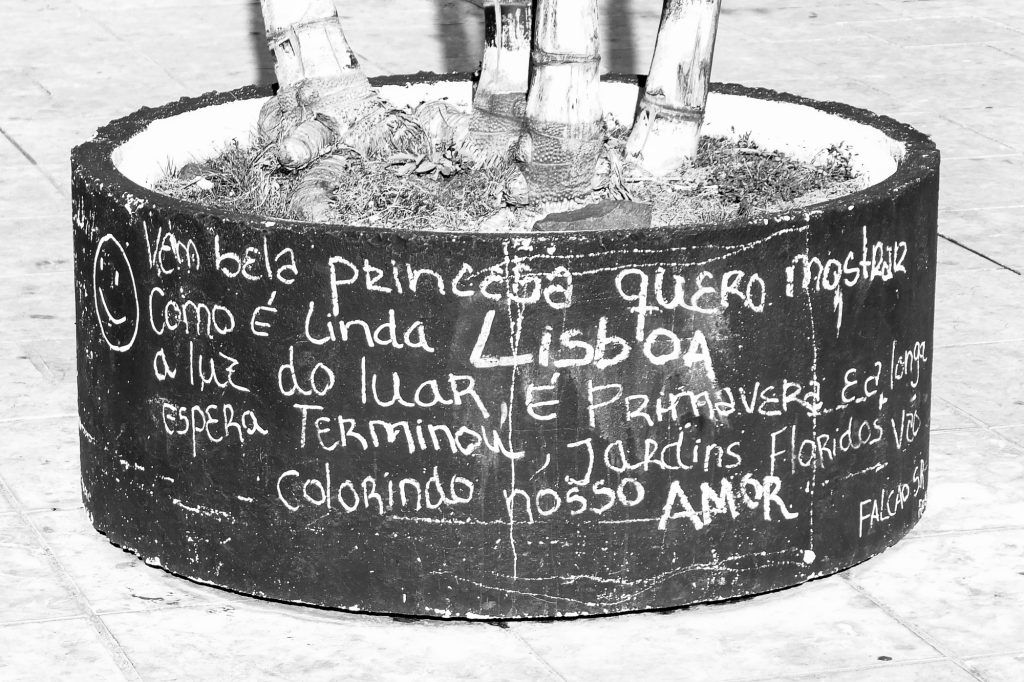 Vem bela princesa quero mostrar
Como é Linda LisboA
a luz do luar, é Primavera e a longa
espera Terminou, Jardins Floridos Vão
Colorindo nosso AMOR
FALCAO S.R